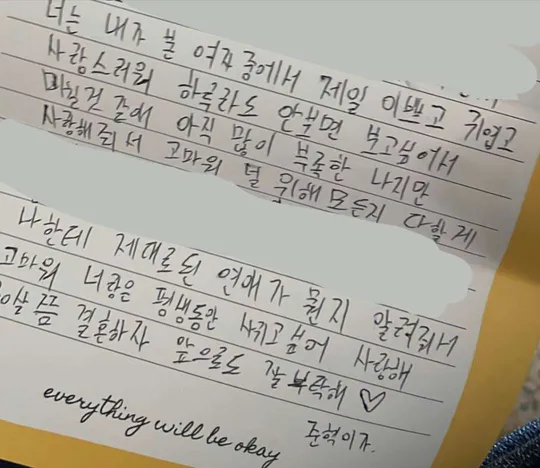 너는 내가 본 여자 중에서 제일 이쁘고 귀엽고
사랑스러워 하루라도 안보면 보고싶어서
미칠것 같애 아직 많이 부족한 나지만
사랑해줘서 고마워 널 위해 모든지 다할게
나한테 제대로된 연애가 뭔지 알려줘서
고마워 너랑은 평생동안 사귀고 싶어 사랑해
0살 쯤 결혼하자 앞으로도 잘 부탁해 ♡
everything will be okay
준혁이가.